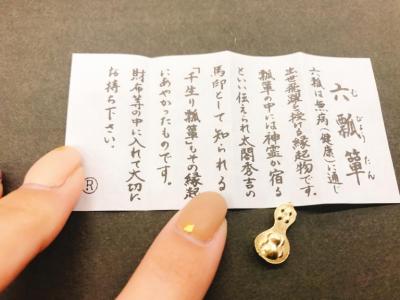 六瓢箪
むびょうたん
六瓢は無病(健康)に通じ
出世飛躍を授ける縁起物です。
瓢箪の中には神霊が宿る
といい伝えられ太閤秀吉の
馬印として知られる
「千生り瓢箪」もその縁起
にあやかったものです。
財布等の中に入れて大切に
お持ち下さい。
®